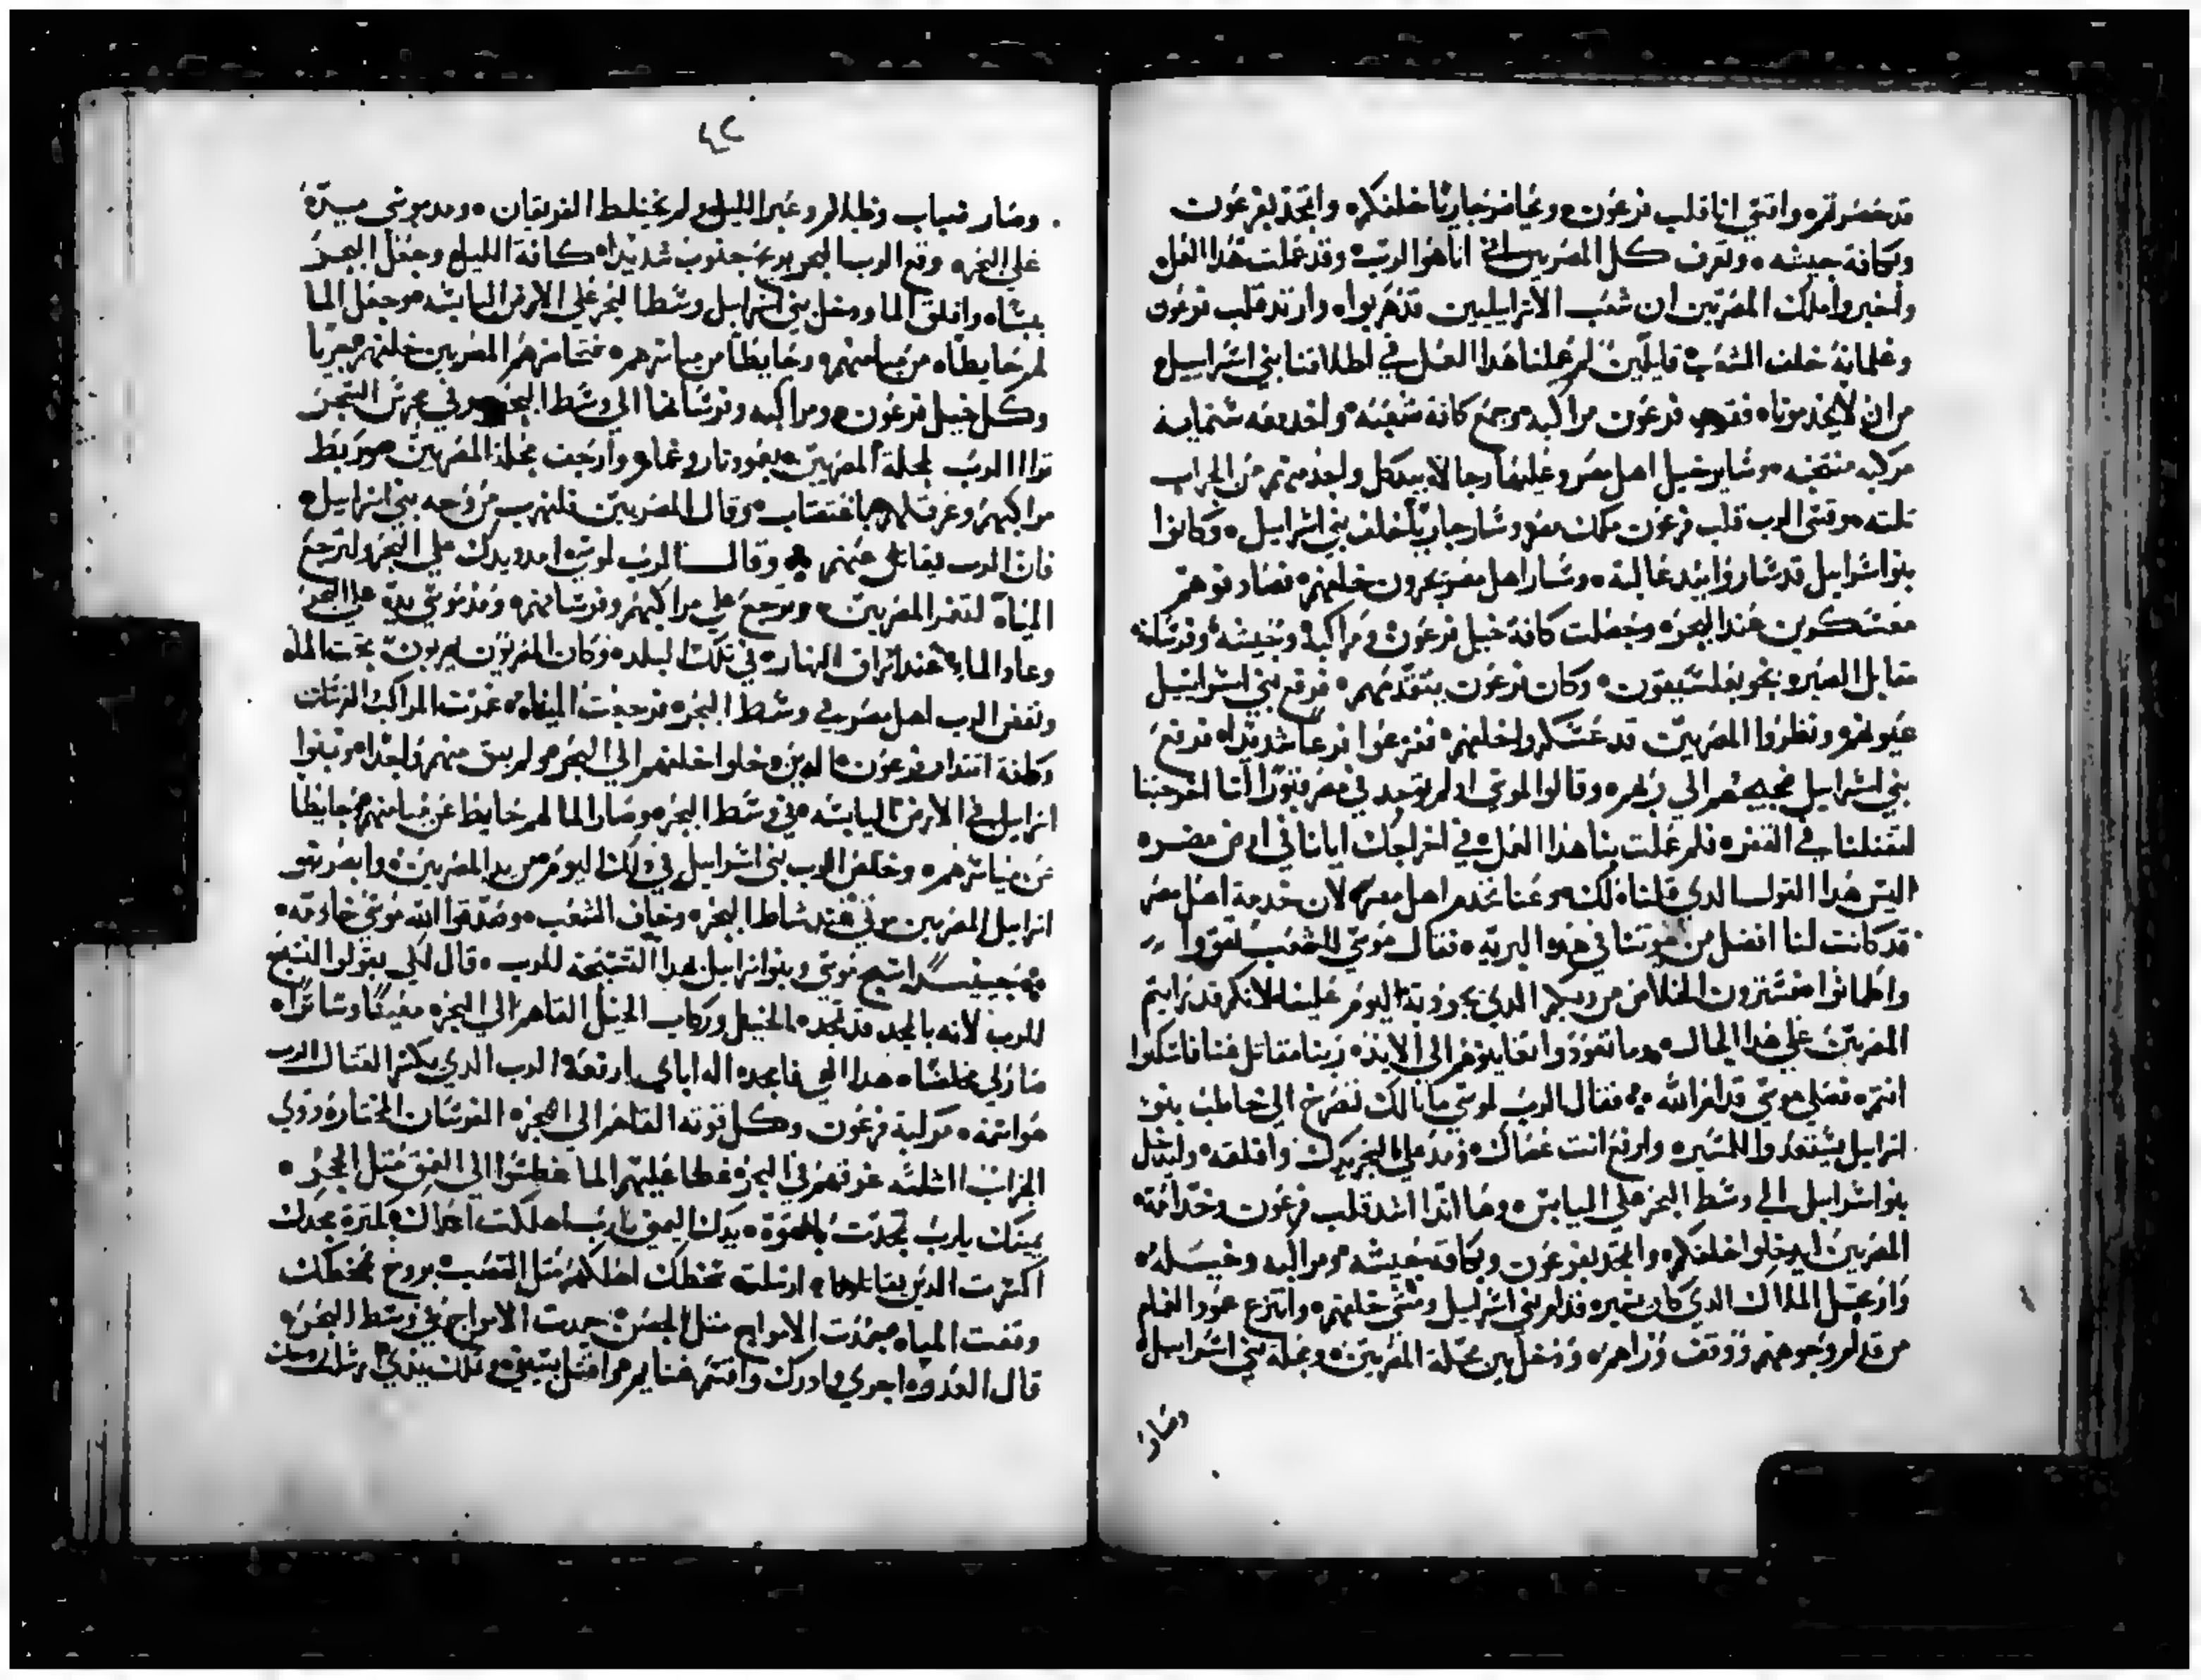 قد حصرتهم واقسي انا قلب فرعون ويحاضر جاريًا خلفكم واتمجد بفرعون
وبكافة جيشه ويعرف كل المصريين اني انا هو الرب وقد عملت هذا الفعل
واخبروا ملك المصريين ان شعب الاسراييليين قد هربوا وارتد قلب فرعون
وغلمانه خلف الشعب قايلين لم عملنا هذا العمل في اطلاقنا بني اسراييل
من ان لا يخدمونا فقوم فرعون مراكبه وجمع كافة شعبه واخد معه ستماية
مركبه منتخبه وساير خيل اهل مصر وعليها رجالا بيد كل واحد منهم من الحراب
تلته وقسى الرب قلب فرعون ملك مصر وسار جاريًا خلف بني اسراييل وكانوا
بنوا اسراييل قد ساروا بيد عاليه وسار اهل مصر يجرون خلفهم فصادفوهم
معسكرين عند البحر وحصلت كافة خيل فرعون ومراكبه وجيشه وفرسانه
مقابل الصيره نحو بعلسيفون وكان فرعون يتقدمهم فرفع بني اسراييل
عيونهم ونظروا المصريين قد عسكروا خلفهم ففزعوا فزعا شديدًا فرفع
بني اسراييل ضجيجهم الي ربهم وقالوا لموسي اد لم توجد في مصر قبورًا انا اخرجتنا
لتقتلنا في القفر فلم عملت بنا هذا العمل في اخراجك ايانا في ارض مصر
اليس هدا القول الدي قلناه لك دعنا نخدم اهل مصر لان خدمة اهل مصر
قد كانت لنا افضل من موتنا في هذه البريه فقال موسي للشعب تقووا
واطمانوا فستنظرون الخلاص من ربكم الدي يجوز به اليوم علينا لانكم قد رايتم
المصريين علي هذا الحال وما تعودوا تعاينوهم الي الابد ربنا مقاتل عنا فاسكتوا
انتم فصلي موسي قدام الله فقال الرب لموسي ما بالك تصرخ الي خاطب بني
اسراييل يستعدوا للمسير وارفع انت عصاك ومد علي البحر يدك وافلقه وليدخل
بنوا اسراييل الي وسط البحر علي اليابس وها اندا اشد قلب فرعون وخدامه
المصريين ليدخلوا خلفكم واتمجد بفرعون وبكافة جيشه ومراكبه وخيله
وارتحل الملاك الدي كان يسير قدام بني اسراييل ومشي خلفهم وانتزع عمود الغمام
من قدام وجوههم ووقف وراهم ودخل بين محلة المصريين ومحلة بني اسراييل
وصار
٤٢
وصار ضباب وظلام وعبر الليل ولم يختلط الفريقان ومد موسي يده
علي البحر ودفع الرب البحر بريح جنوب شديدًا كافة الليل وجعل البحر
يبسًا وانفلق الما ودخل بني اسراييل وسط البحر علي الارض اليابسه وجعل الما
لهم حايطًا من ميامنهم وحايطًا من مياسرهم فتحاضرهم المصريين خلفهم جريًا
وكل خيل فرعون ومراكبه وفرسانها الي وسط البحر وفي محرس السحر
ترااا الرب لمحلة المصريين بعمود نار وغمام وارجف محلة المصريين وربط
مراكبهم وغرقهم باغتصاب وقال المصريين فلنهرب من وجه بني اسراييل
فان الرب يقاتل عنهم وقال الرب لموسي امدد يدك علي البحر ولترجع
المياه لتغمر المصريين وترجع علي مراكبهم وفرسانهم ومد موسي يده علي البحر
وعاد الما عند اشراق النهار في تلك البلد وكان المصريون يهربون تحت الما
ونفض الرب اهل مصر في وسط البحر فرجعت المياه وغمرت المراكب الفرسان
وكافة اقتدار فرعون الدين دخلوا خلفهم الي البحر ولم يبق منهم واحدًا وبنوا
اسراييل في الارض اليابسه في وسط البحر وصار الما لهم حايط عن ميامنهم وحايطا
عن مياسرهم وخلص الرب بني اسراييل في ذلك اليوم من يد المصريين وابصر بنو
اسراييل المصريين موتي عند شاطي البحر وخاف الشعب وصدقوا الله موسي خادمه
حينيد اسبح موسي وبنو اسراييل بهدا التسبحة للرب قال لكي يقولوا النسبح
للرب لانه بالمجد قد تمجد الخيل وركاب الخيل القاهم الي البحر معينًا وساترًا
صار لي مخلصًا هذا الهي فامجده اله اباي ارفعه الرب الدي يكسر القتال الرب
هو اسمه مركبة فرعون وكل قوته القاهم الي البحر الفرسان المختاره دوي
الحراب الثلثه غرقهم في البحر غطا عليهم الما غطسوا الي العمق مثل الحجر
يمينك يارب تمجدت بالقوه يدك اليمني يارب اهلكت اعداك بكثرة مجدك
اكسرت الذين يقاتلونا ارسلت سخطك اهلكهم مثل القصب بروح سخطك
وقفت المياه جمدت الامواج مثل الحصن جمدت الامواج في وسط البحر
قال العدو اجري وادرك واقسم غنايم واقتل بسيفي وتملك يدي ارسلت روحك